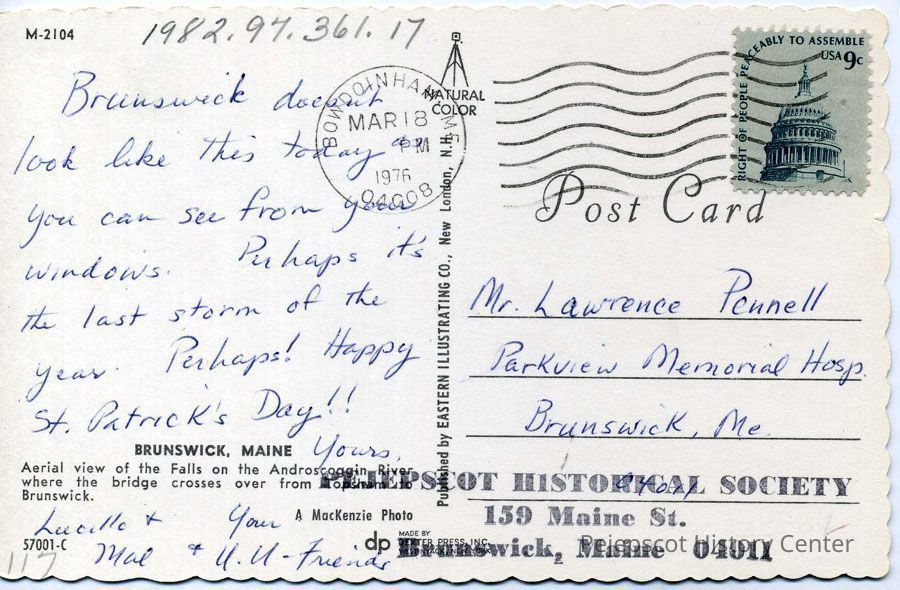 M-2104
1982.97.361.17
Brunswick doesn't
look like this today as
you can see from your
windows. Perhaps it's
the last storm of the
year. Perhaps! Happy
St. Patrick's Day!!
Yours,
Lucille &
Mal & Your U.U-Friends
BRUNSWICK, MAINE
Aerial view of the Falls on the Androscoggin River
where the bridge crosses over from Topsham to
Brunswick.
A MacKenzie Photo
57001-C
117
NATURAL
COLOR
Published by EASTERN ILLUSTRATING CO., New London, N.H.
dp MADE BY
DEXTER PRESS, INC.
BOWDOINHAM, ME
MAR 18
PM
1976
04008
RIGHT OF PEOPLE PEACEABLY TO ASSEMBLE
USA 9c
Post Card
Mr. Lawrence Pennell
Parkview Memorial Hosp.
Brunswick, Me.
04011
PEJEPSCOT HISTORICAL SOCIETY
159 Maine St.
Brunswick, Maine 04011
Pejepscot History Center